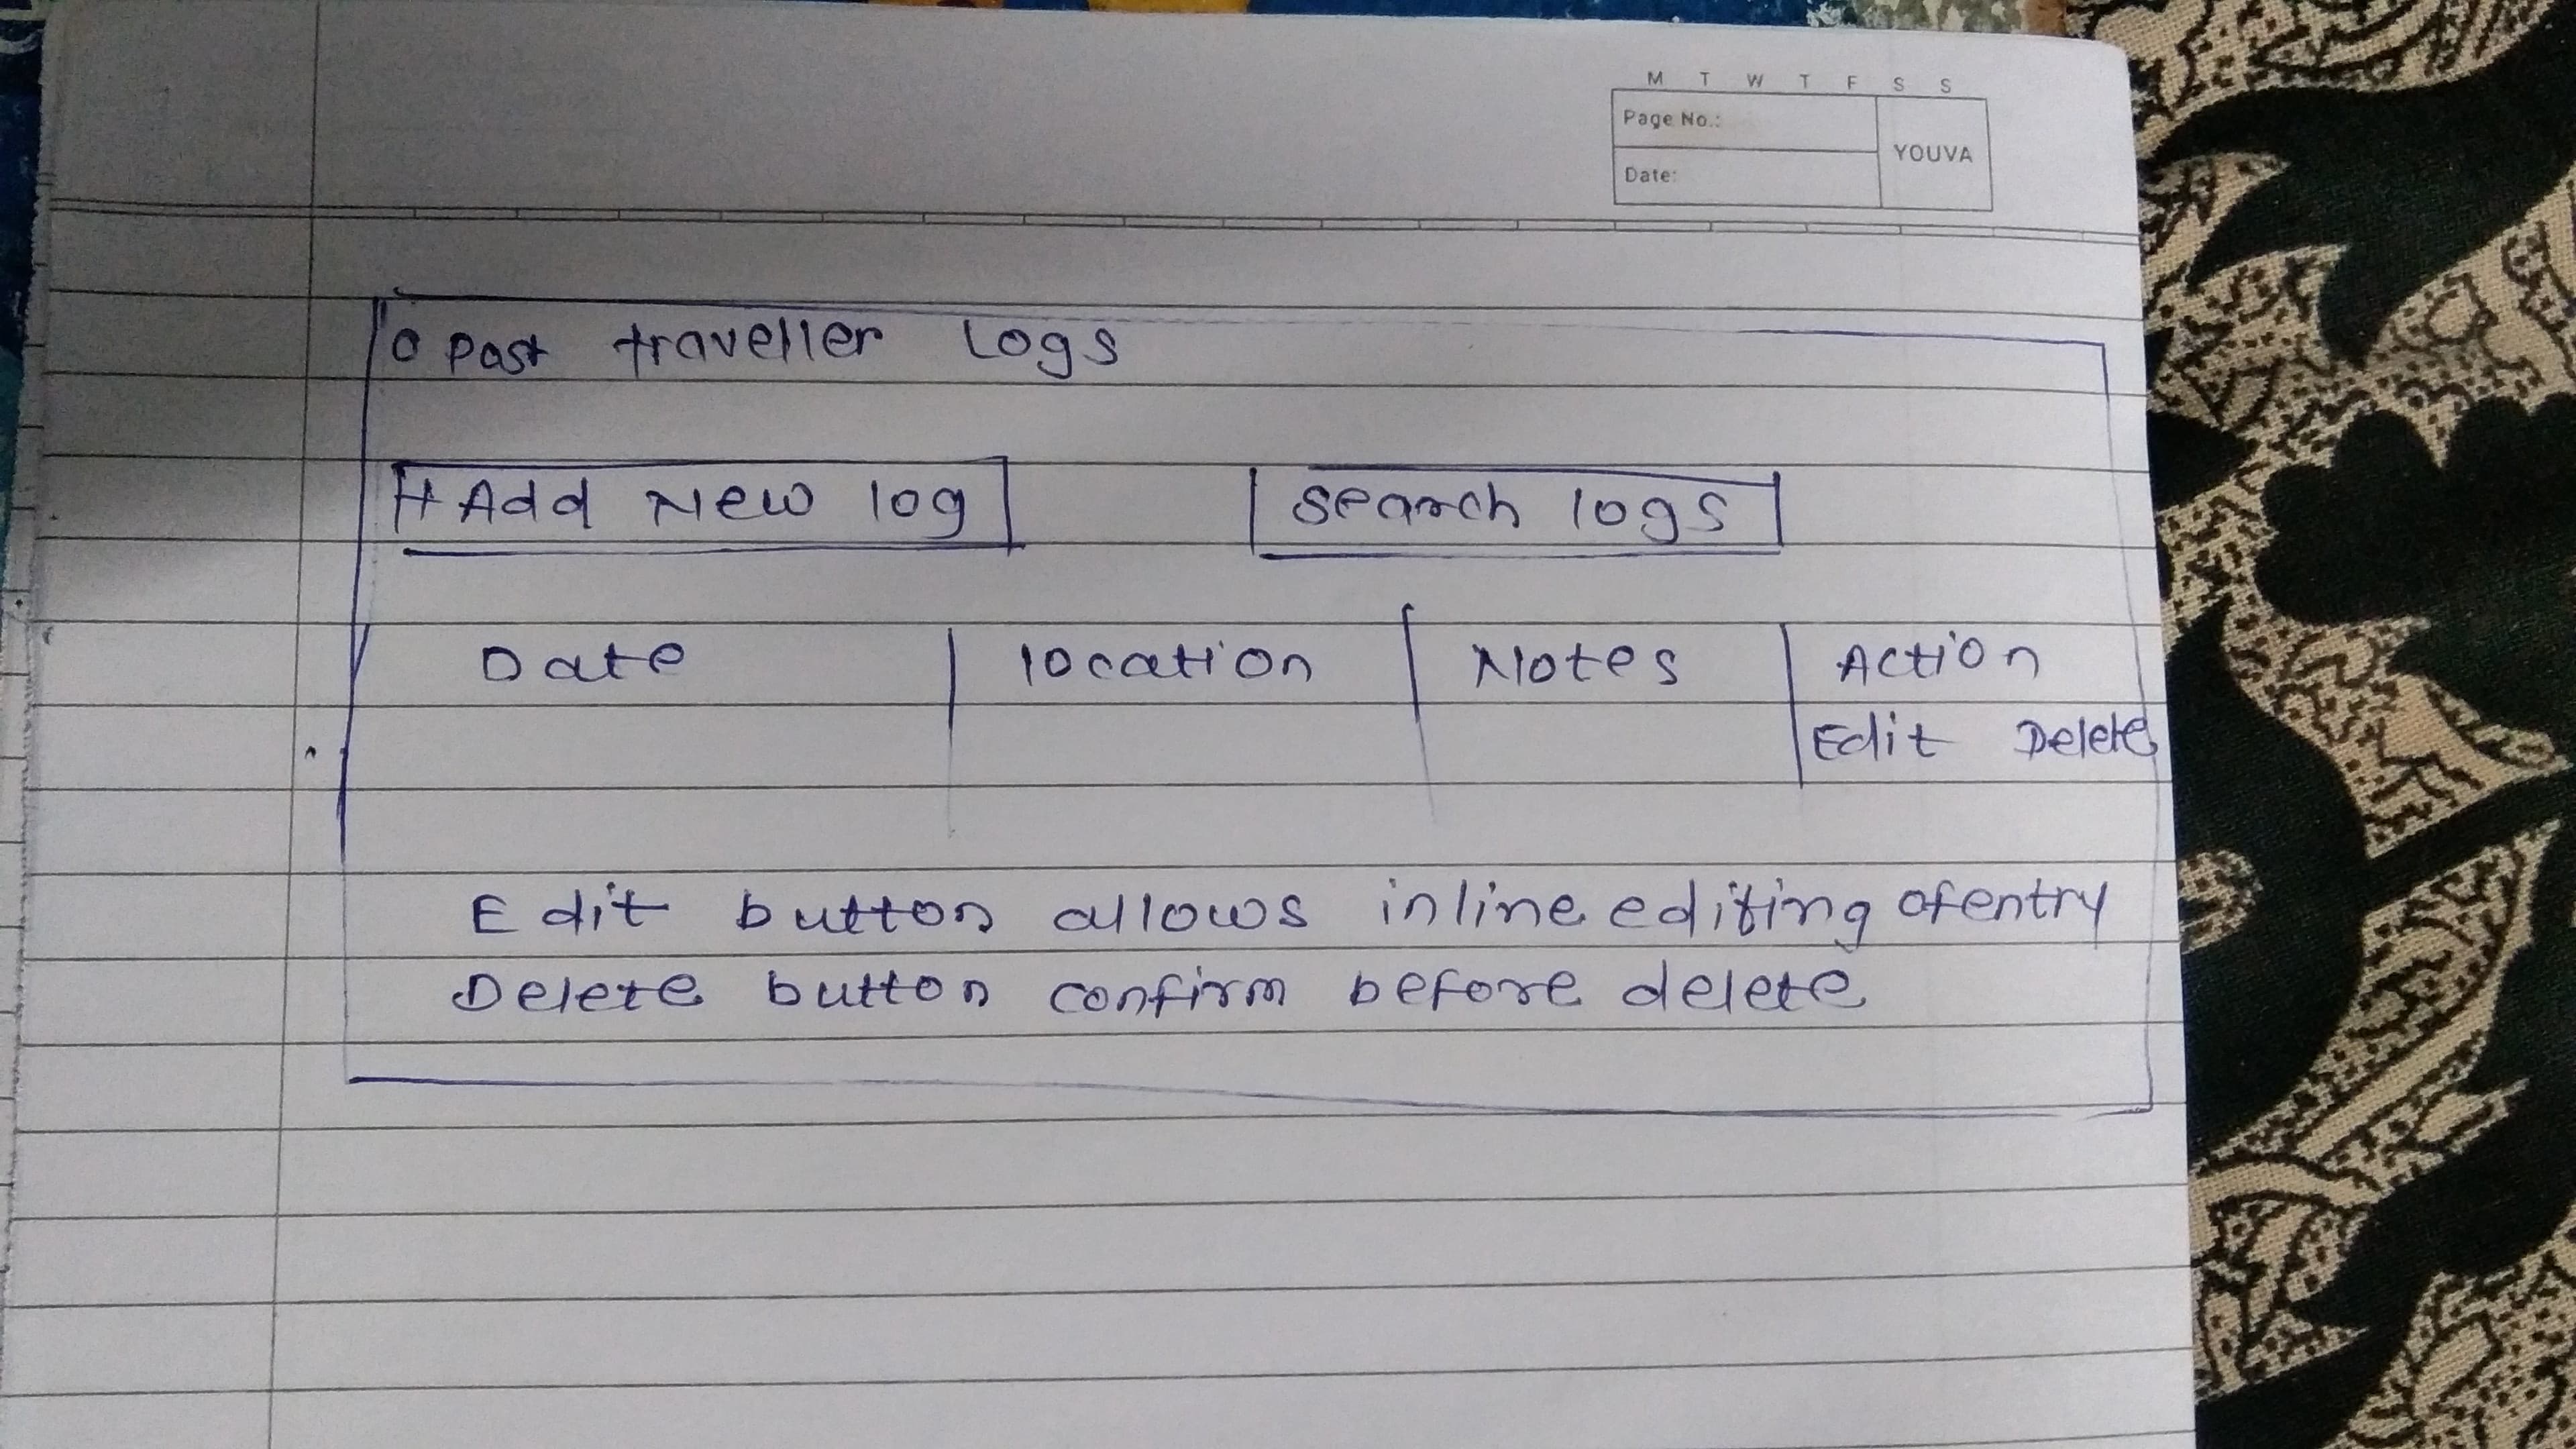 M T W T F S S
Page No.:
YOUVA
Date:
o Past traveller Logs
+ Add New log
search logs
Date location Notes Action
Edit Delete
Edit button allows inline editing of entry
Delete button confirm before delete